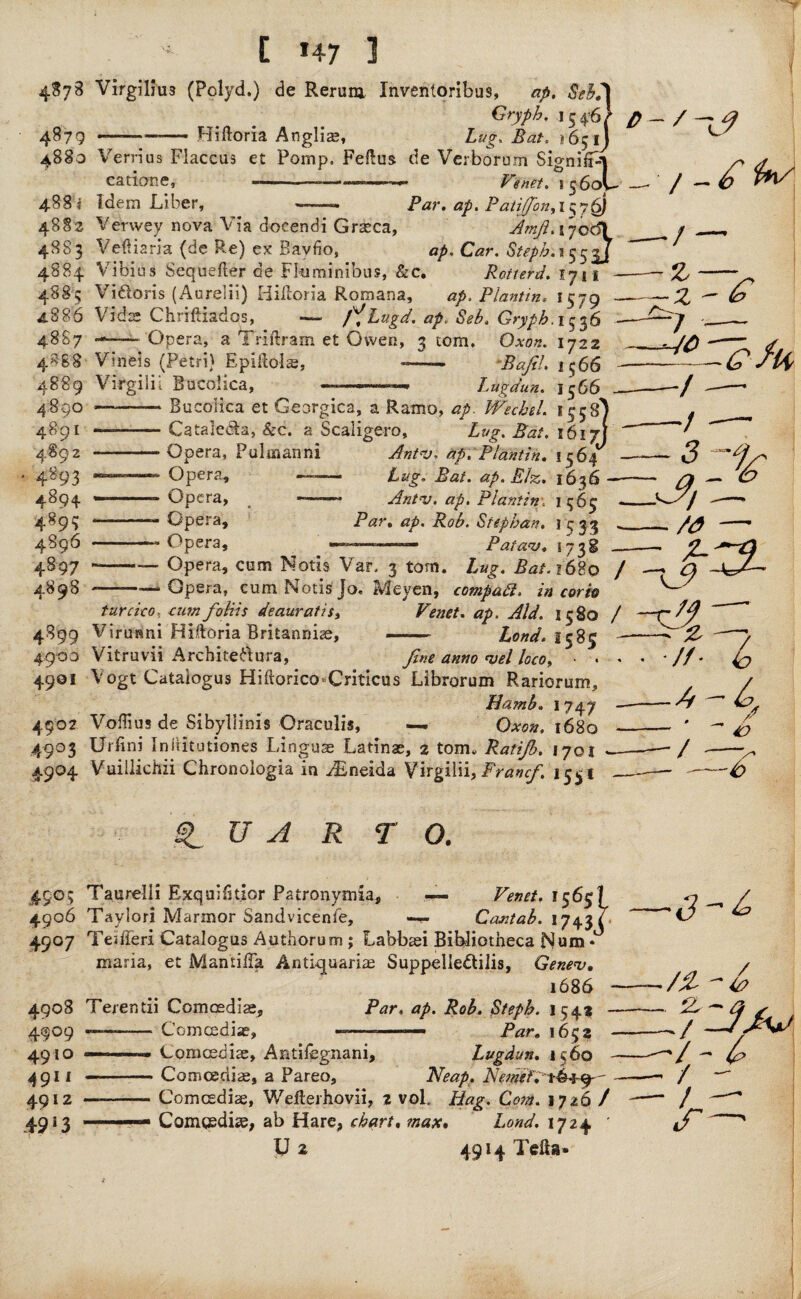 [ 147 ]
4878 Virgilius (Polyd.) de Rerum Inventoribus, ap. Seb.
Gryph. 1546
4879 ——— Hiſtoria Angliæ, Lug. Bat. 1651
4880 Verrius Flaccus et Pomp. Feſtus de Verborum Signifi-
catione, ——— Venet. 1560
4881 Idem Liber, —— Par. ap. Patiſſon, 1576
4882 Verwey nova Via docendi Græca, Amſt. 1706
4883 Veſtiaria (de Re) ex Bayfio, ap. Car. Steph. 1553
4884 Vibius Sequeſter de Fluminibus, &c. Rotterd. 1711
4885 Victoris (Aurelii) Hiſtoria Romana, ap. Plantin. 1579
4886 Vidæ Chriſtiados, — Lugd. ap. Seb. Gryph. 1536
4887 —— Opera, a Triſtram et Owen, 3 tom. Oxon. 1722
4888 Vineis (Petri) Epiſtolæ, —— Baſil. 1566
4889 Virgilii Bucolica, ——— Lugdun. 1566
4890 ——— Bucolica et Georgica, a Ramo, ap. Wechel. 1558
4891 ——— Catalecta, &c. a Scaligero, Lug. Bat. 1617
4892 ——— Opera, Pulmanni Antv. ap. Plantin. 1564
4893 ——— Opera, —— Lug. Bat. ap. Elz. 1636
4894 ——— Opera, —— Antv. ap. Plantin. 1565
4895 ——— Opera, Par. ap. Rob. Stephan. 1533
4896 ——— Opera, ——— Patav. 1738
4897 ——— Opera, cum Notis Var. 3 tom. Lug. Bat. 1680
4898 ——— Opera, cum Notis Jo. Meyen, compact. in corio
turcico, cum foliis deauratis, Venet. ap. Ald. 1580
4899 Virunni Hiſtoria Britanniæ, —— Lond. 1585
4900 Vitruvii Architectura, ſine anno vel loco, . . . .
4901 Vogt Catalogus Hiſtorico-Criticus Librorum Rariorum,
Hamb. 1747
4902 Voſſius de Sibyllinis Oraculis, — Oxon. 1680
4903 Urſini Inſtitutiones Linguæ Latinæ, 2 tom. Ratiſb. 1701
4904 Vuillichii Chronologia in Æneida Virgilii, Francf. 1551
QUARTO.
4905 Taurelli Exquiſitior Patronymia, — Venet. 1565
4906 Taylori Marmor Sandvicenſe, — Cantab. 1743
4907 Teiſſeri Catalogus Authorum ; Labbæi Bibliotheca Num-
maria, et Mantiſſa Antiquariæ Suppellectilis, Genev.
1686
4908 Terentii Comœdiæ, Par. ap. Rob. Steph. 1542
4909 ——— Comœdiæ, ——— Par. 1652
4910 ——— Comœdiæ, Antiſegnani, Lugdun. 1560
4911 ——— Comœdiæ, a Pareo, Neap. Nemet. 1619
4912 ——— Comœdiæ, Weſterhovii, 2 vol. Hag. Com. 1726
4913 ——— Comœdiæ, ab Hare, chart. max. Lond. 1724
U 2 4914 Teſta-